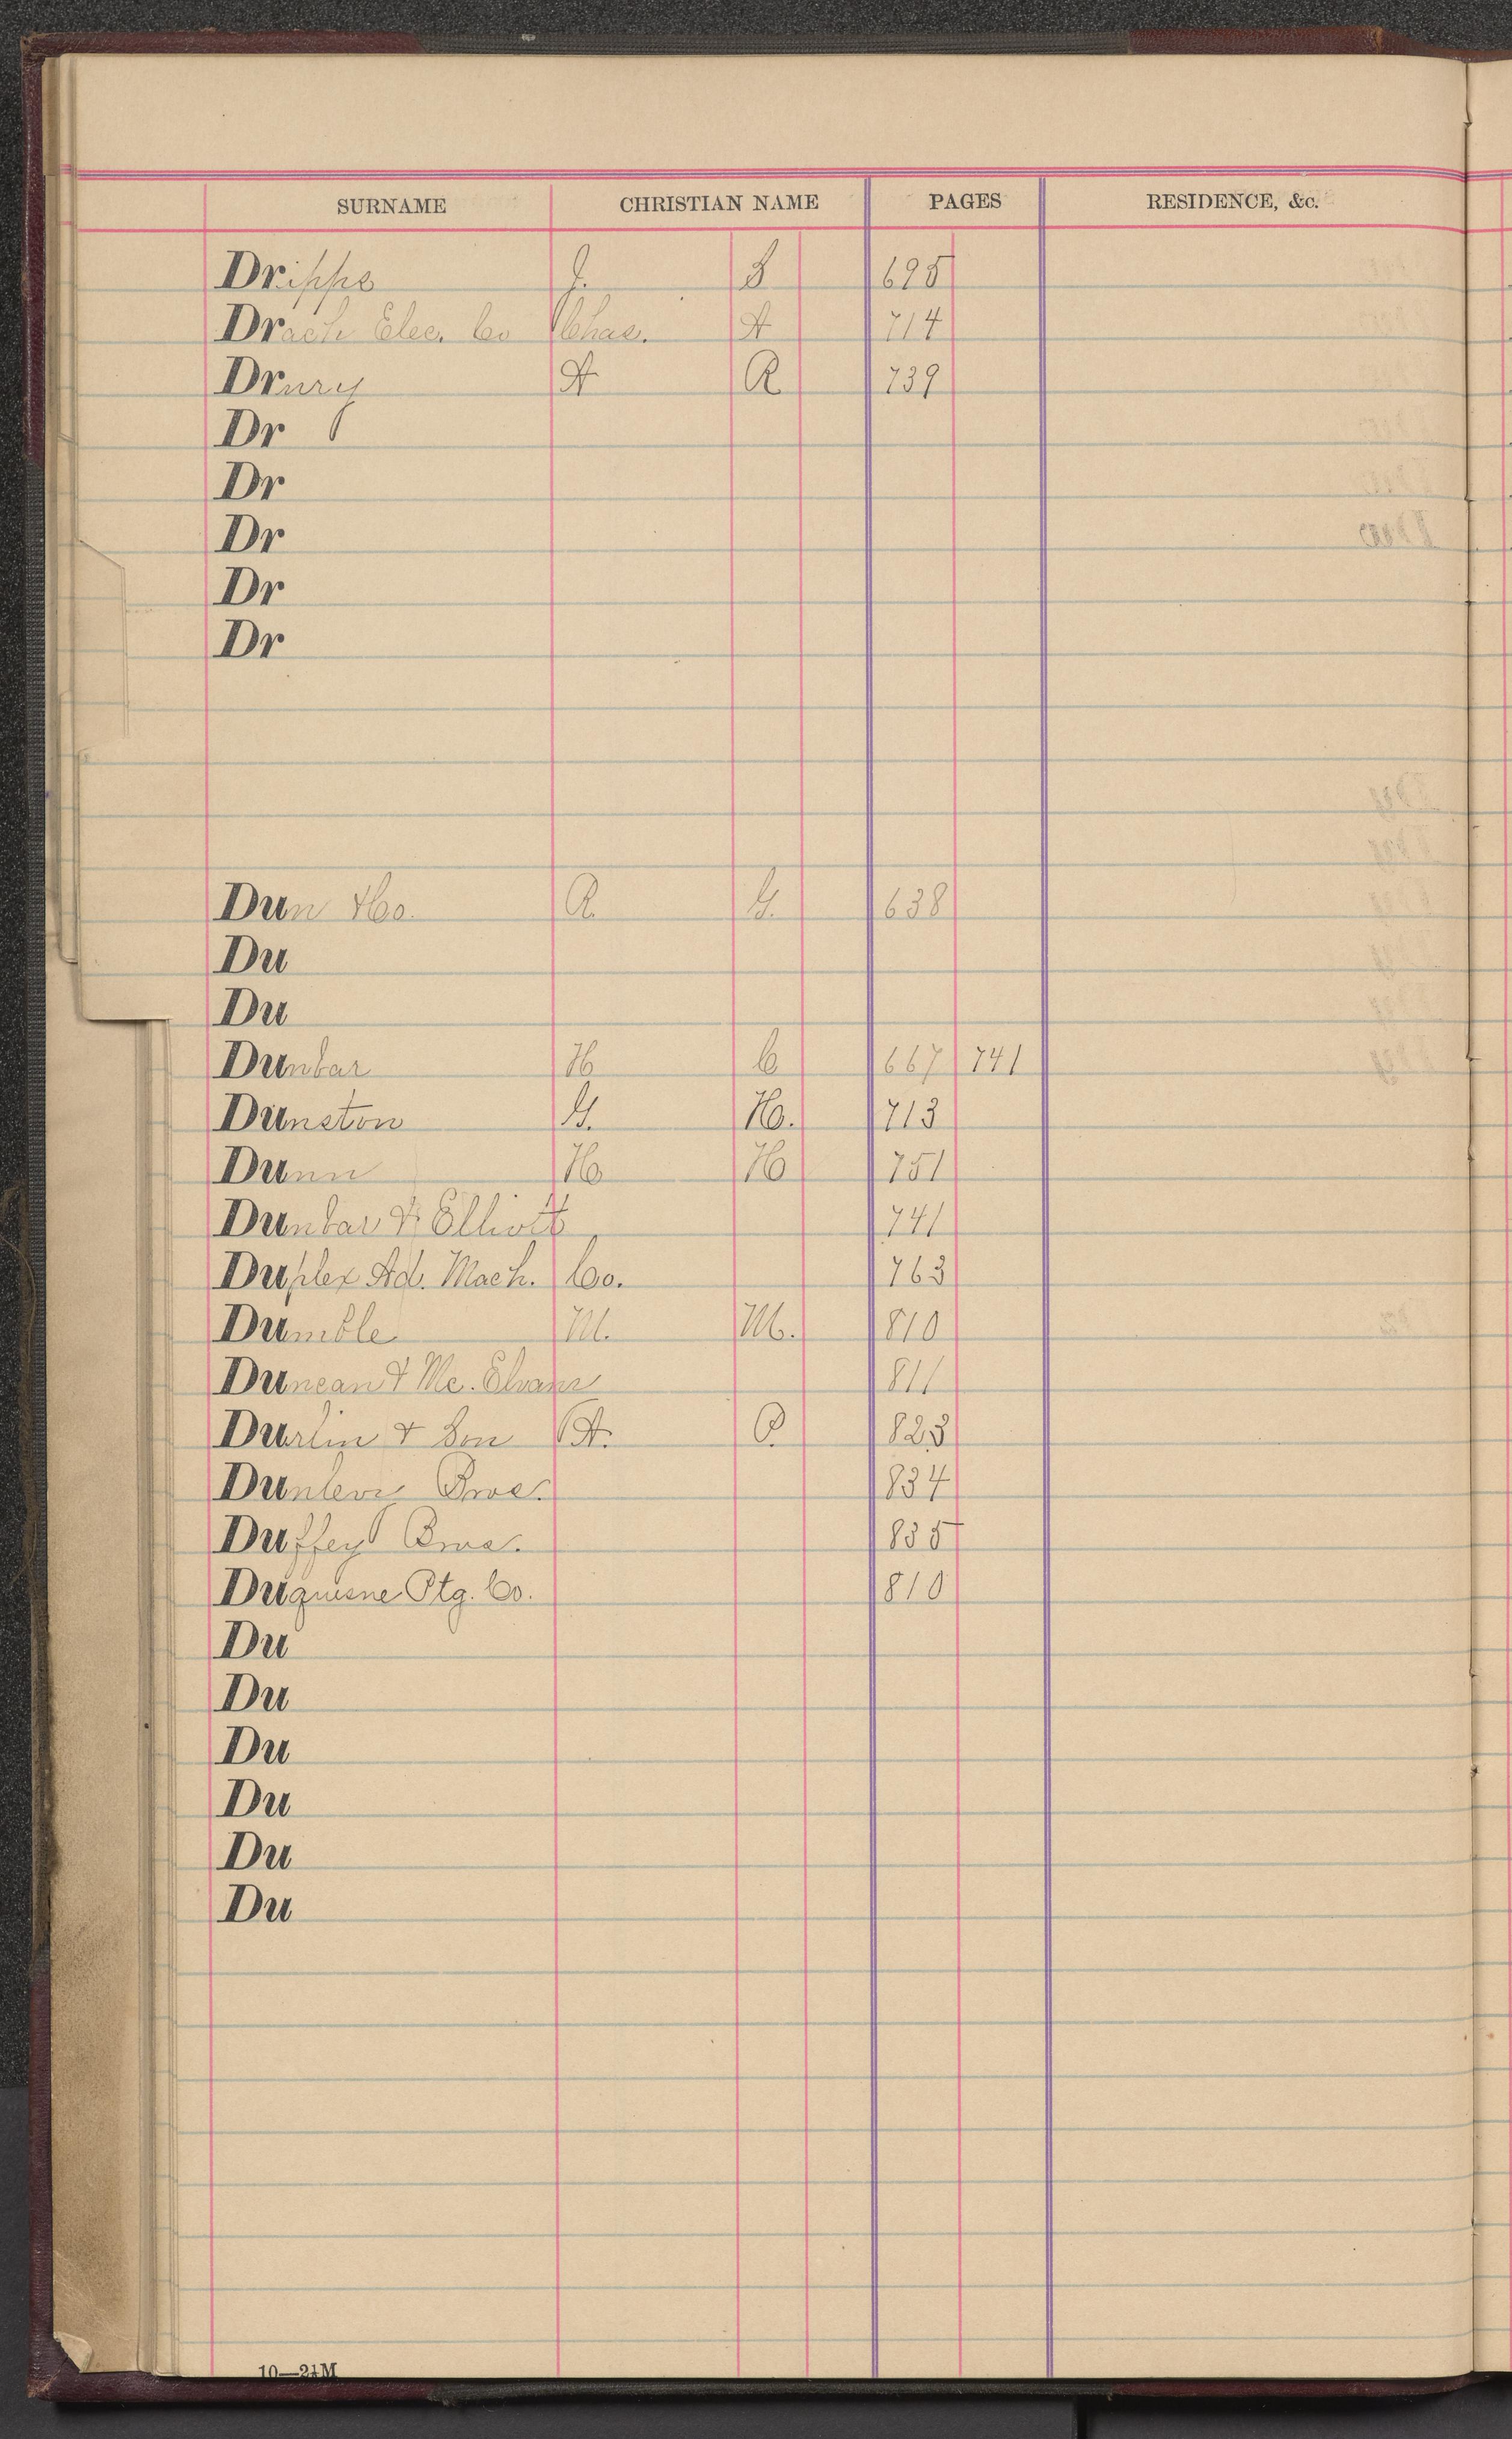 SURNAME CHRISTIAN NAME PAGES RESIDENCE, &c.
Dripps J. S 695
Drach Elec. Co Chas. A 714
Drury A R 739
Dr
Dr
Dr
Dr
Dr
Dun & Co. R. G. 638
Du
Du
Dunbar H C 667 741
Dunston G. H. 713
Dunn H H 751
Dunbar & Elliott 741
Duplex Ad. Mach. Co. 763
Dumble M. M. 810
Duncan & Mc. 811
Durlin & Son A. P. 823
Dunlevi Bros. 834
Duffey Bros. 835
Duquesne Ptg. Co. 810
Du
Du
Du
Du
Du
Du
10—21M